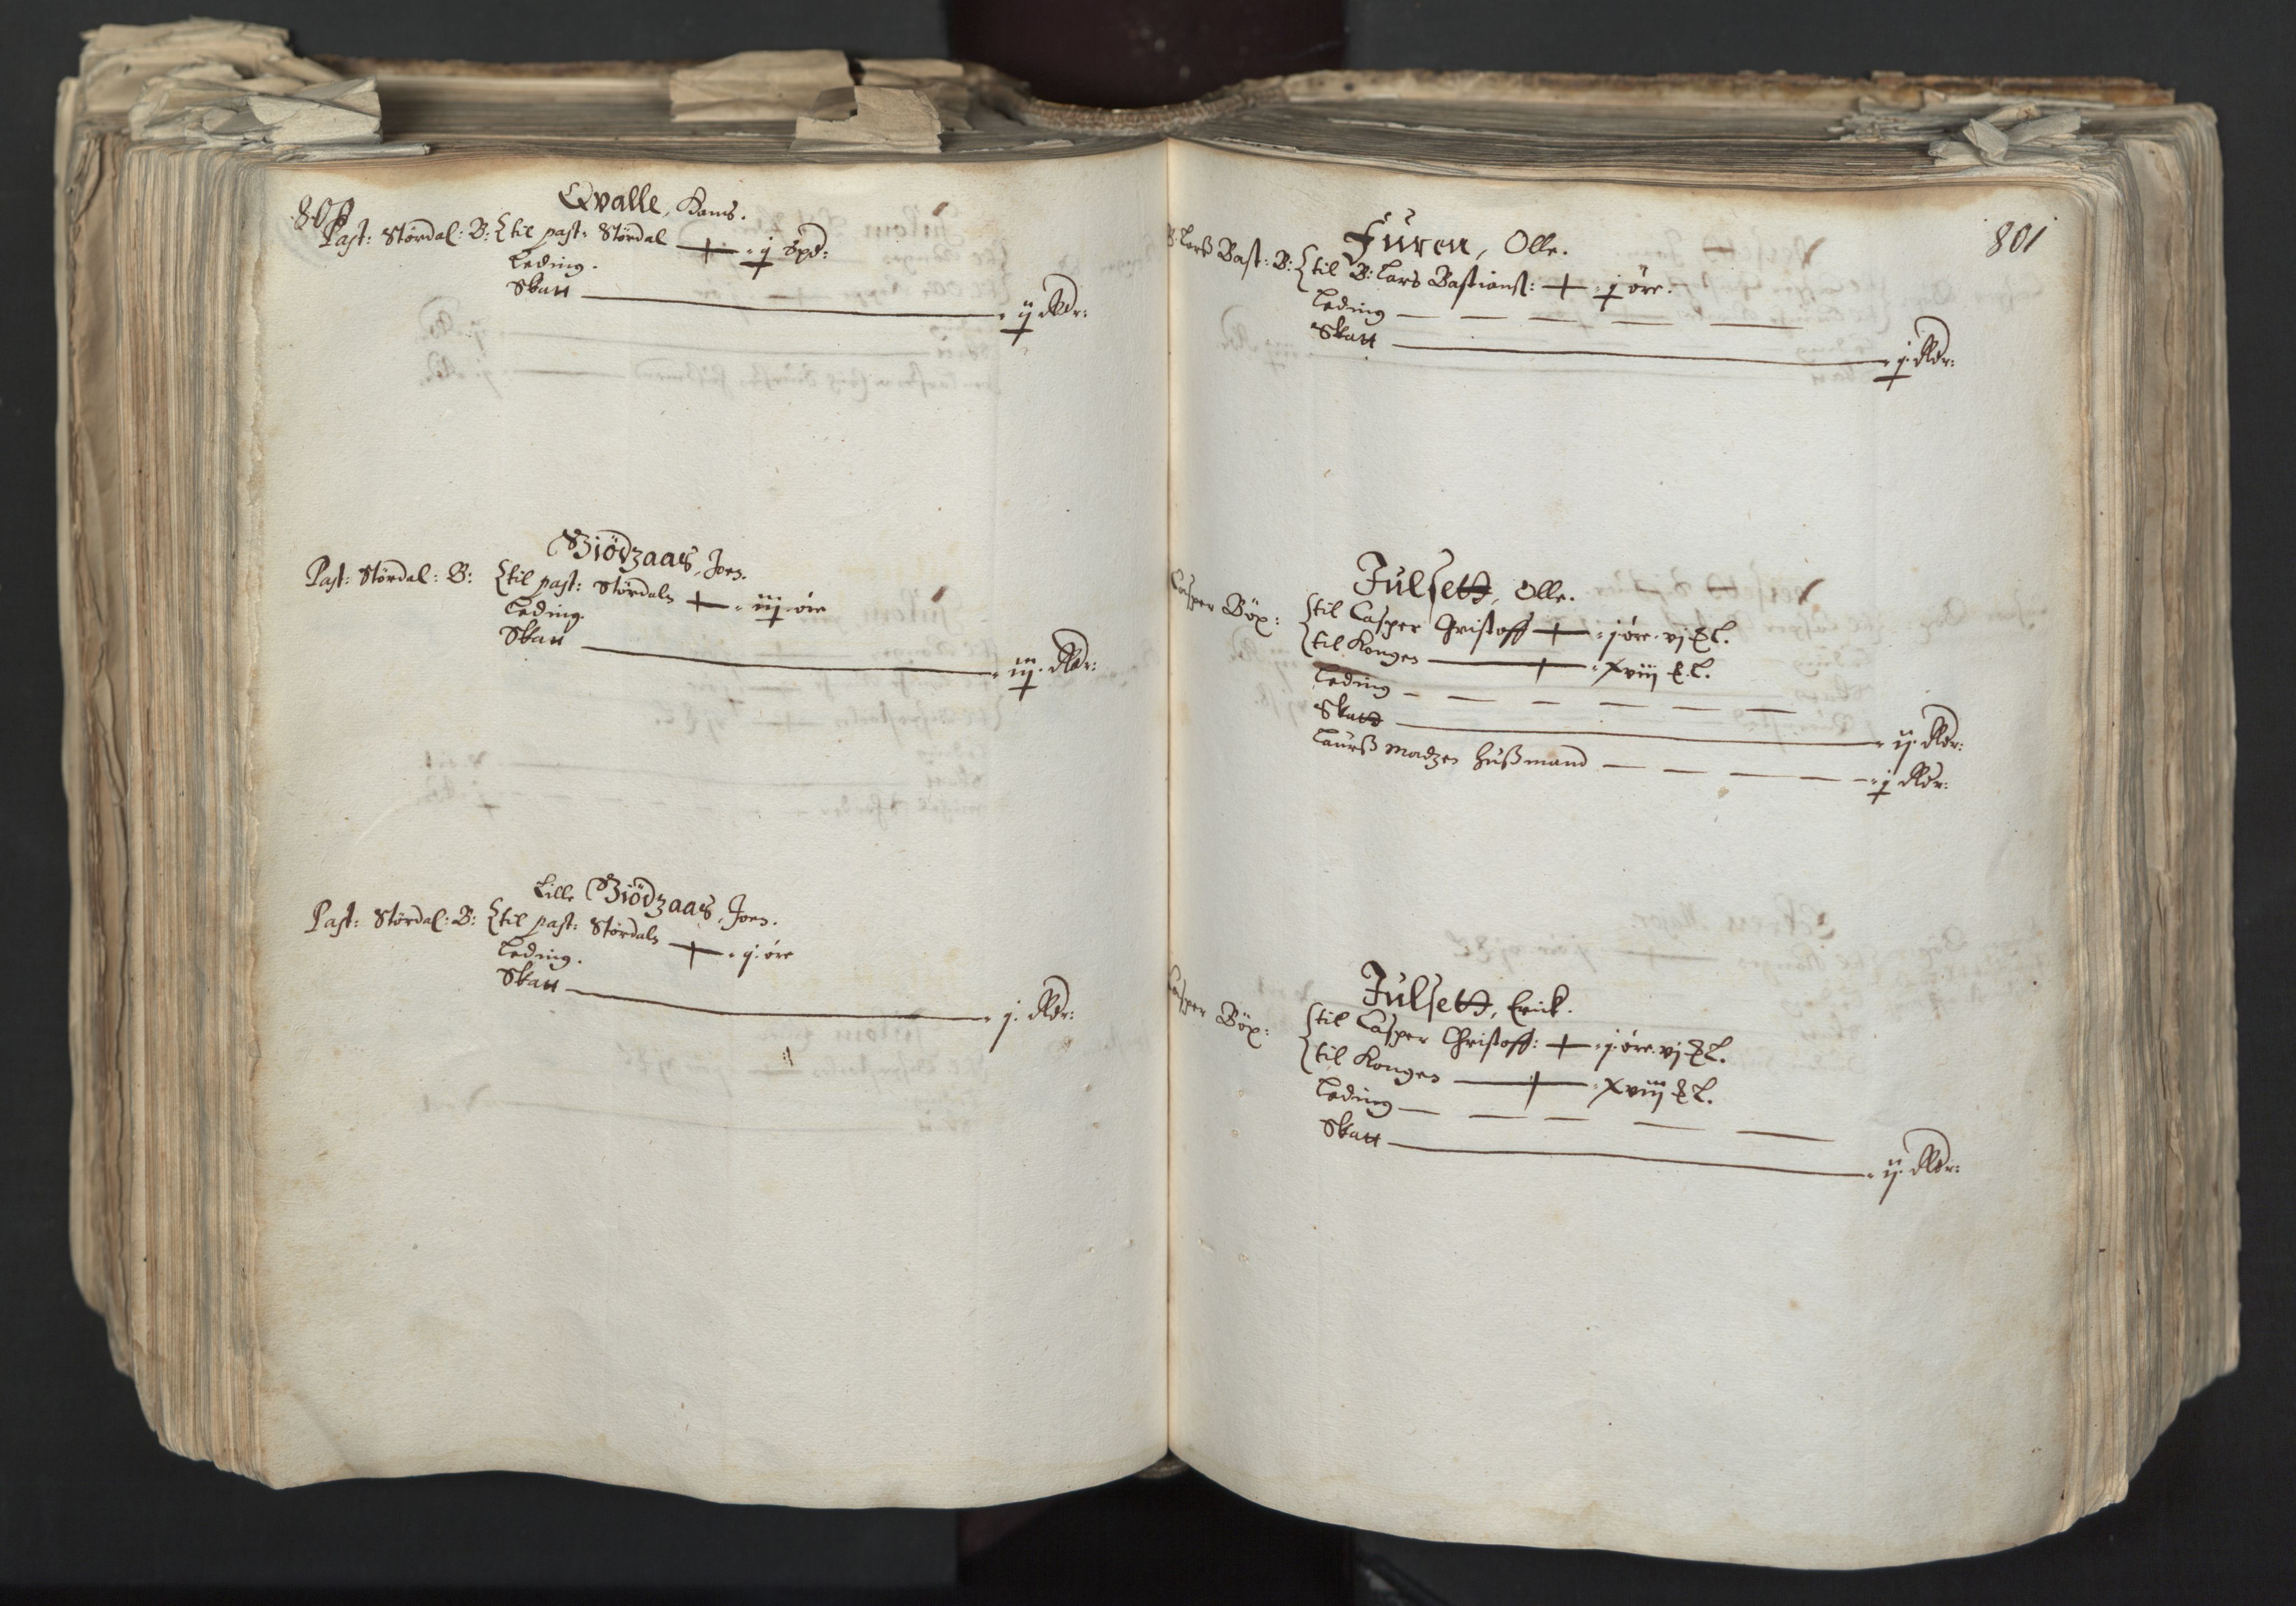 800
Qvalle, Hans.
Past: Størdal: B: til past: Størdal j øpd:
Leding.
Skatt ij Rdr:
Biödzaas, Joen.
Past: Størdal: B: til past: Størdaln iij øre
Leding.
Skatt iij Rdr:
Lille Biödzaas, Joen.
Past: Størdal: B: til past: Størdaln j øre
Leding.
Skatt j Rdr:
801
Furen, Olle.
B. Larß Bast: B: til B: Lars Bastianß: j øre.
Leding
Skatt j Rdr:
Julsett, Olle.
Casper Böx: til Casper Christoff j øre vj L.
til Kongen xviij L.
Leding
Skatt ij Rdr:
Laurß Madzen Hußmand j Rdr:
Julsett, Erick.
Casper Böx: til Casper Christoff: j øre vj L.
til Kongen xviij L.
Leding
Skatt ij Rdr: